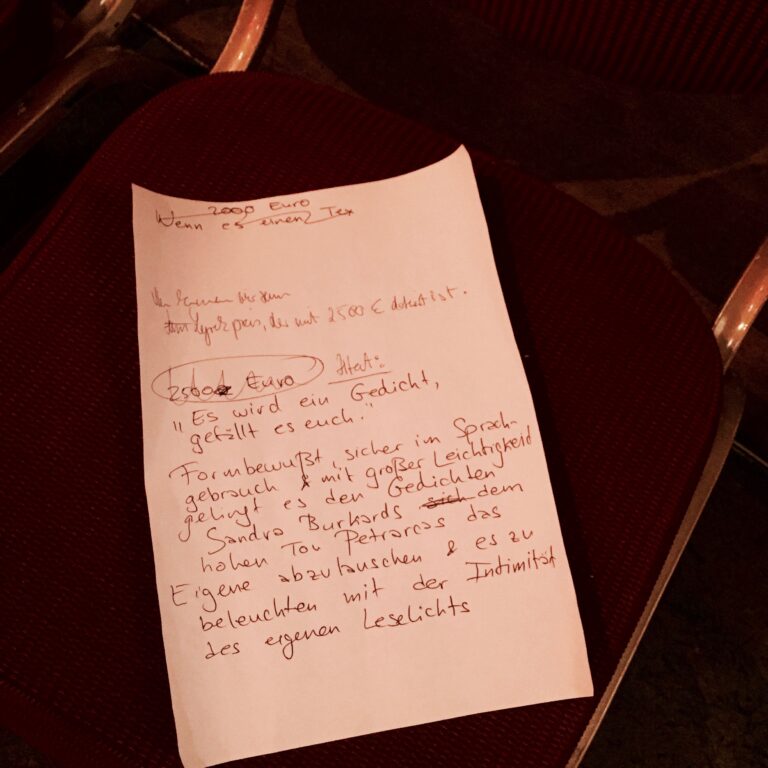 2000 Euro
Wenn es einen Tex
Lyrikpreis, der mit 2500 € dotiert ist.
2500 Euro Zitat:
"Es wird ein Gedicht,
gefällt es euch."
Formbewußt, sicher im Sprach-
gebrauch & mit großer Leichtigkeit
gelingt es den Gedichten
Sandra Burkards sich dem
hohen Ton Petrarcas das
Eigene abzulauschen & es zu
beleuchten mit der Intimität
des eigenen Leselichts